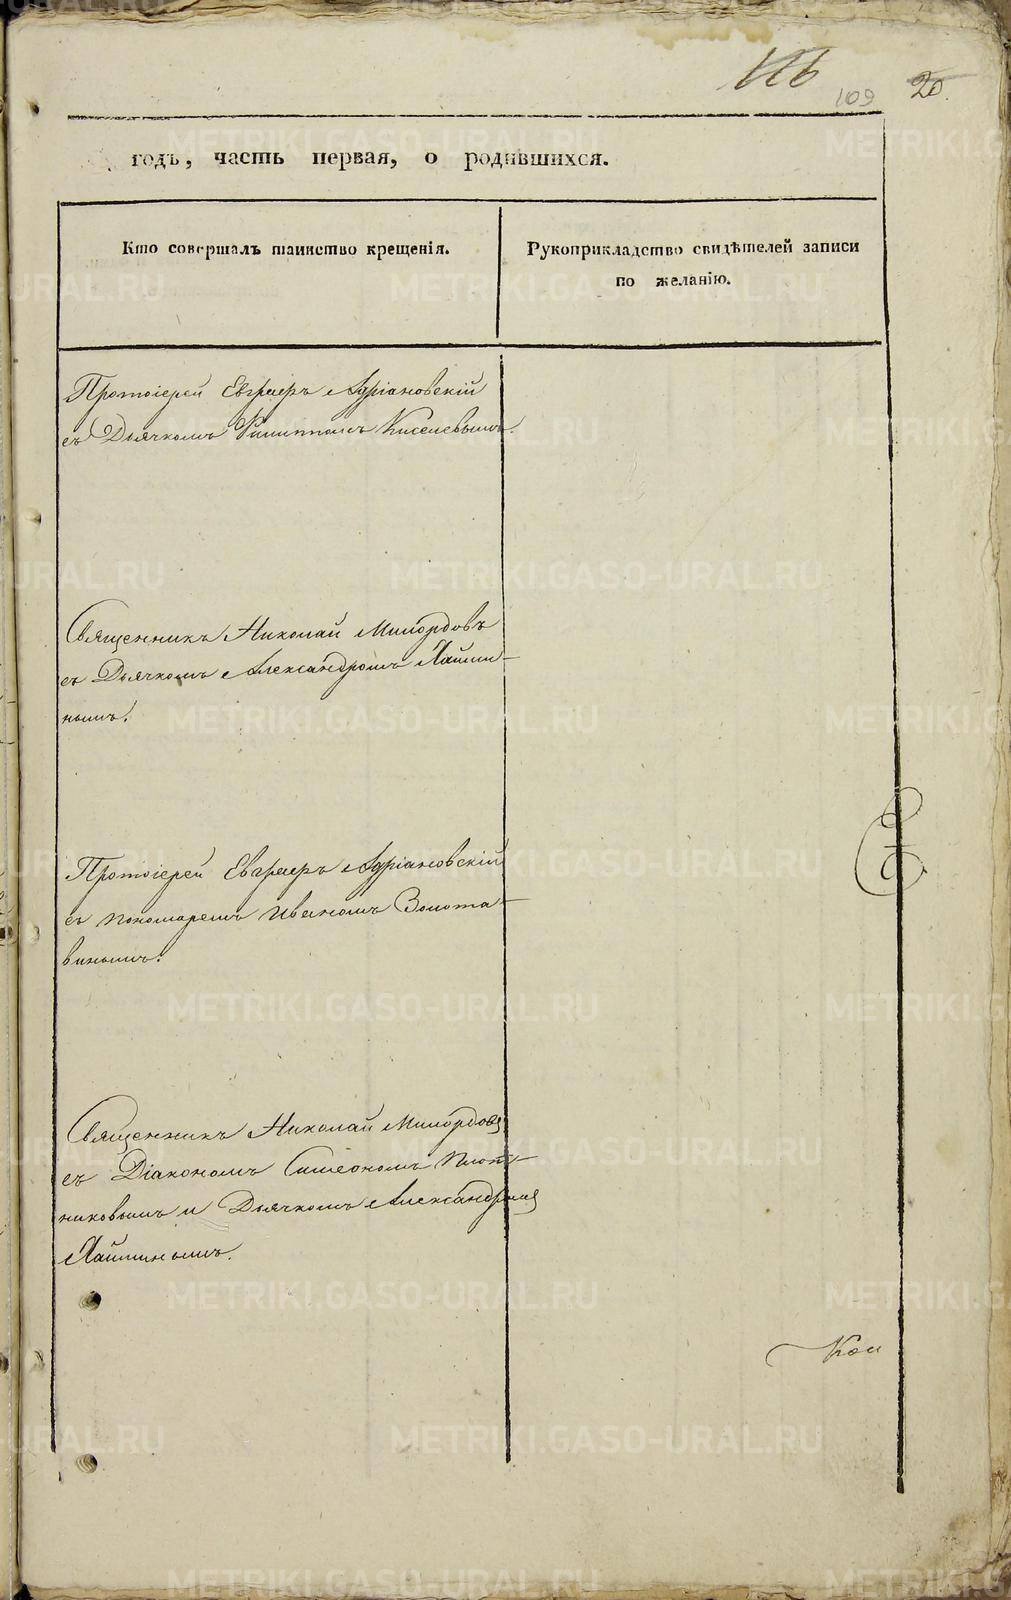 109 20.
годъ, часть первая, о родившихся.
Кто совершалъ таинство крещенія.
Рукоприкладство свидѣтелей записи
по желанію.
Протоіерей Евграфъ Адріановскій
съ Дьячкомъ Филиппомъ Киселевымъ.
Священникъ Николай Милордовъ
съ Дьячкомъ Александромъ
нымъ.
Протоіерей Евграфъ Адріановскій
съ пономаремъ Иваномъ Золота-
винымъ.
Священникъ Николай Милордовъ
съ Діакономъ Симеономъ Плот-
никовымъ и Дьячкомъ Александромъ
METRIKI.GASO-URAL.RU